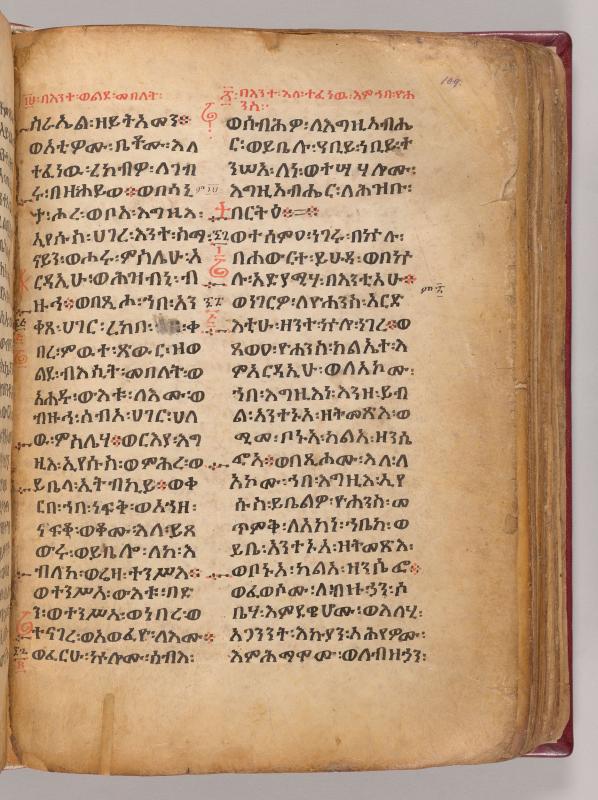 ፲፱፡በእንተ፡ወልደ፡መበለት፡
ስራኤል፡ዘይትአመን።
ወእቲዎሙ፡ቤቶሙ፡እለ
ተፈነዉ፡ረከብዎ፡ለገብ
ሩ፡በዘሐይወ።ወበሳኒ
ታ፡ሖረ፡ወቦአ፡እግዚእ፡
ኢየሱስ፡ሀገረ፡እንተ፡ስማ፡
ናይን፡ወሖሩ፡ምስሌሁ፡አ
ርዳኢሁ፡ወሕዝብኒ፡ብ
ዙኅ።ወበጺሖ፡ኀበ፡አን
ቀጸ፡ሀገር፡ረከበ፡ቀ
በረ፡ምዉተ፡ጽውር፡ዘወ
ልደ፡ብእሲት፡መበለት፡ወ
አሐዱ፡ውእቱ፡ለእሙ፡ወ
ብዙኅ፡ሰብአ፡ሀገር፡ህለ
ዉ፡ምስሌሃ።ወርእየ፡እግ
ዚእ፡ኢየሱስ፡ወምሕረ፡ወ
ይቤላ፡ኢትብክዪ።ወቀ
ርበ፡ኀበ፡ነፍቅ፡ወአኀዘ፡
ናፍቆ፡ወቆሙ፡እለ፡ይጸ
ውሩ፡ወይቤሎ፡ለከ፡እ
ብለከ፡ወሬዛ፡ተንሥእ።
ወተንሥአ፡ውእቱ፡በድ
ን፡ወተንሥአ፡ወነበረ፡ወ
ተናገረ፡ወአወፈዮ፡ለእሙ።
ወፈርሁ፡ኵሎሙ፡ሰብእ፡
፳፡በእንተ፡እለ፡ተፈነዉ፡እምኀበ፡ዮሐ
ንስ፡
109.
ወሰብሕዎ፡ለእግዚአብሔ
ር፡ወይቤሉ፡ሃቢይ፡ነቢይ፡ት
ንሥአ፡ለነ፡ወተሣሃሎሙ፡
እግዚአብሔር፡ለሕዝቡ፡
በርትዕ።=።
ወተሰምዐ፡ነገሩ፡በኵሉ፡
በሐውርተ፡ይሁዳ፡ወበኵ
ሉ፡አድያሚሃ፡በእንቲአሁ።
ወነገርዎ፡ለዮሐንስ፡አርድ
እቲሁ፡ዘንተ፡ኵሎ፡ነገረ።ወ
ጸወዐ፡ዮሐንስ፡ክልኤተ፡እ
ምአርዳኢሁ፡ወለአኮሙ፡
ኀበ፡እግዚእነ፡እንዘ፡ይብ
ል፡አንተኑአ፡ዘትመጽእ፡ወ
ሚመ፡ቦኑአ፡ካልእ፡ዘንሴ
ፎአ።ወበጺሖሙ፡እለ፡ለ
አኮሙ፡ኀበ፡እግዚእ፡ኢየ
ሱስ፡ይቤልዎ፡ዮሐንስ፡መ
ጥምቅ፡ለአከነ፡ኀቤከ፡ወ
ይቤ፡አንተኑአ፡ዘትመጽእ፡
ወቦኑአ፡ካልእ፡ዘንሴፎ።
ወፈወሶሙ፡ለብዙኃን፡ሶ
ቤሃ፡እምደዌሆሙ፡ወአሰሲ፡
አጋንንት፡እኩያን፡አሕየዎሙ፡
እምሕማሞሙ፡ወለብዙኃን፡